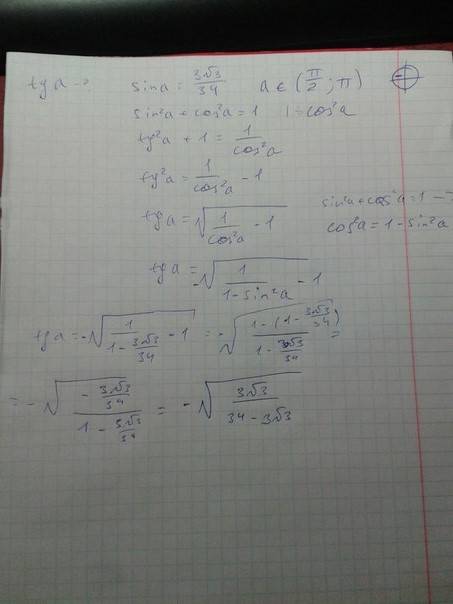 tg a - ? sin a = 3√3/34 a ∈ (π/2 ; π)
sin²a + cos²a = 1 1 ÷ cos²a
tg²a + 1 = 1/cos²a
tg²a = 1/cos²a - 1
tg a = -√(1/cos²a - 1) sin²a + cos²a = 1 →
cos²a = 1 - sin²a
tg a = -√(1/(1 - sin²a) - 1)
tg a = -√(1/(1 - 3√3/34) - 1) = -√((1 - (1 - 3√3/34))/(1 - 3√3/34)) =
= -√((- 3√3/34)/(1 - 3√3/34)) = -√(3√3/(34 - 3√3))